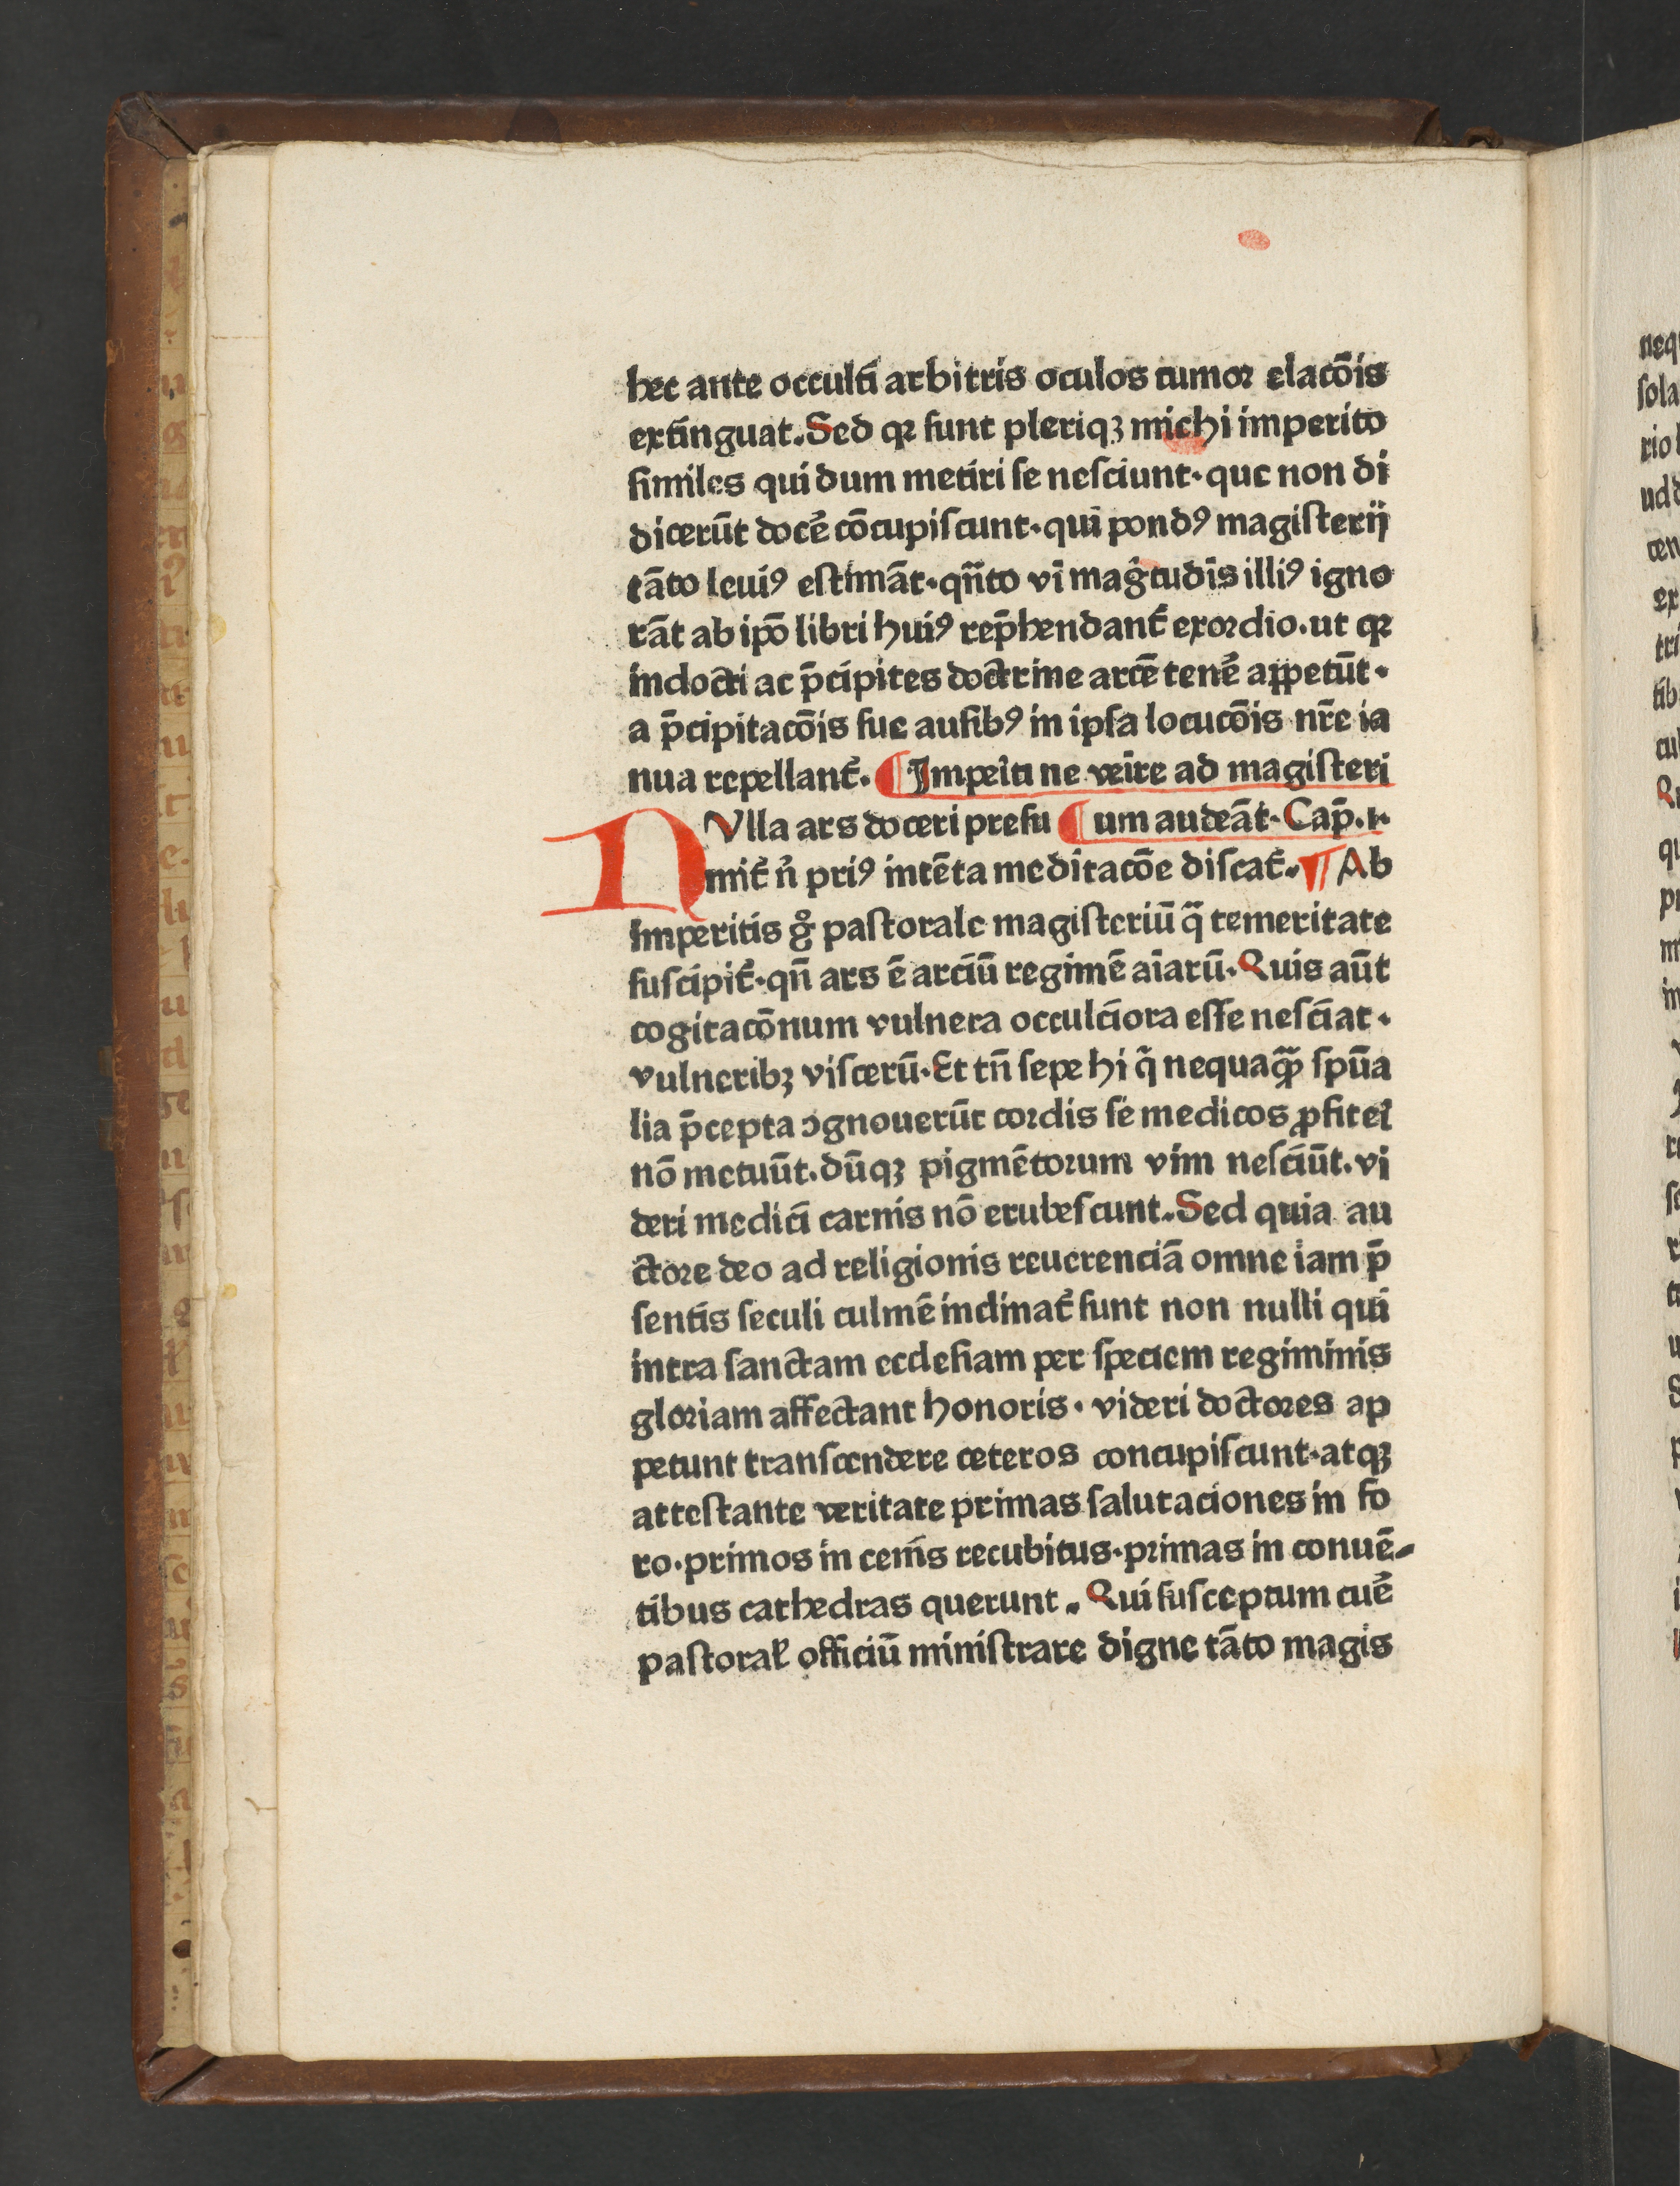 hec ante occulti arbitris oculos tumor elacõis
extinguat. Sed qꝛ sunt pleriqꝫ michi imperito
similes qui dum metiri se nesciunt· que non di
dicerũt docẽ cõcupiscunt· qui pondꝰ magisterij
tãto leuiꝰ estimãt· qñto vĩ mag̃tudĩs illiꝰ igno
rãt ab ip̃o libri huiꝰ rep̃hendant᷑ exordio. ut qꝛ
indocti ac p̃cipites doctrine arcẽ tenẽ appetũt·
a p̃cipitacõis sue ausibꝰ in ipsa locucõis nr̃e ia
nua repellant᷑. ¶ Impeĩti ne veĩre ad magisteri
NVlla ars doceri presu ¶ um audeãt· Cap̃. i·
mit᷑ ñ priꝰ intẽta meditacõe discat᷑. ¶ Ab
imperitis gͦ pastorale magisteriũ q̃ temeritate
suscipit᷑· qñ ars ẽ arciũ regimẽ aĩarũ· Quis aũt
cogitacõnum vulnera occulciora esse nesciat·
vulneribꝫ viscerũ· Et tñ sepe hi q̃ nequaq̃ꝫ spũa
lia p̃cepta ꝯgnouerũt cordis se medicos ꝓfiteĩ
nõ metuũt. dũqꝫ pigmẽtorum vim nesciũt. vi
deri medici carnis nõ erubescunt. Sed quia au
ctore deo ad religionis reuerenciã omne iam p̃
sentis seculi culmẽ inclinat᷑ sunt non nulli qui
intra sanctam ecclesiam per speciem regiminis
gloriam affectant honoris· videri doctores ap
petunt transcendere ceteros concupiscunt· atqꝫ
attestante veritate primas salutaciones in fo
ro· primos in cenis recubitus· primas in conuẽ-
tibus cathedras querunt. Qui susceptum cuẽ
pastoraƚ officiũ ministrare digne tãto magis